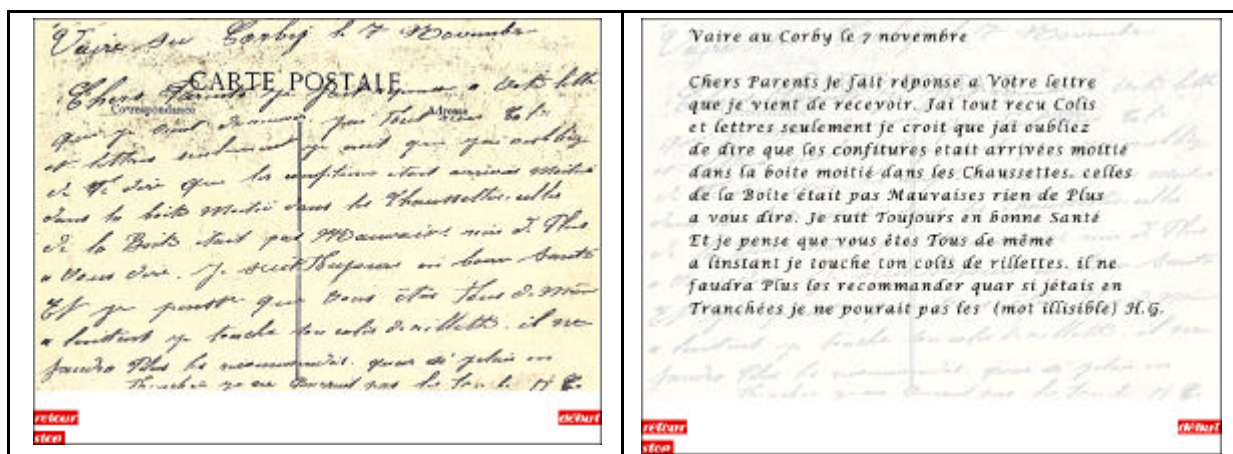 Vaire au Corby le 7 Novembre
CARTE POSTALE
Chers Parents je fait réponse a Votre lettre
Correspondance Adresse
que je vient de recevoir. jai Tout recu Colis
et lettres seulement je croit que jai oubliez
de dire que les confitures etait arrivées moitié
dans la boite Moitié dans les Chaussettes. celles
de la Boite était pas Mauvaises rien de Plus
a Vous dire. Je suit Toujours en bonne Santé
Et je pense que vous êtes Tous de Même
a linstant je touche ton colis de rillettes. il ne
faudra Plus les recommander. quar si jétais en
Tranchées je ne pourait pas les H G.
retour début
stop
Vaire au Corby le 7 novembre
Chers Parents je fait réponse a Votre lettre
que je vient de recevoir. Jai tout recu Colis
et lettres seulement je croit que jai oubliez
de dire que les confitures etait arrivées moitié
dans la boite moitié dans les Chaussettes. celles
de la Boite était pas Mauvaises rien de Plus
a vous dire. Je suit Toujours en bonne Santé
Et je pense que vous êtes Tous de même
a linstant je touche ton colis de rillettes. il ne
faudra Plus les recommander quar si jétais en
Tranchées je ne pourait pas les (mot illisible) H.G.
retour début
stop